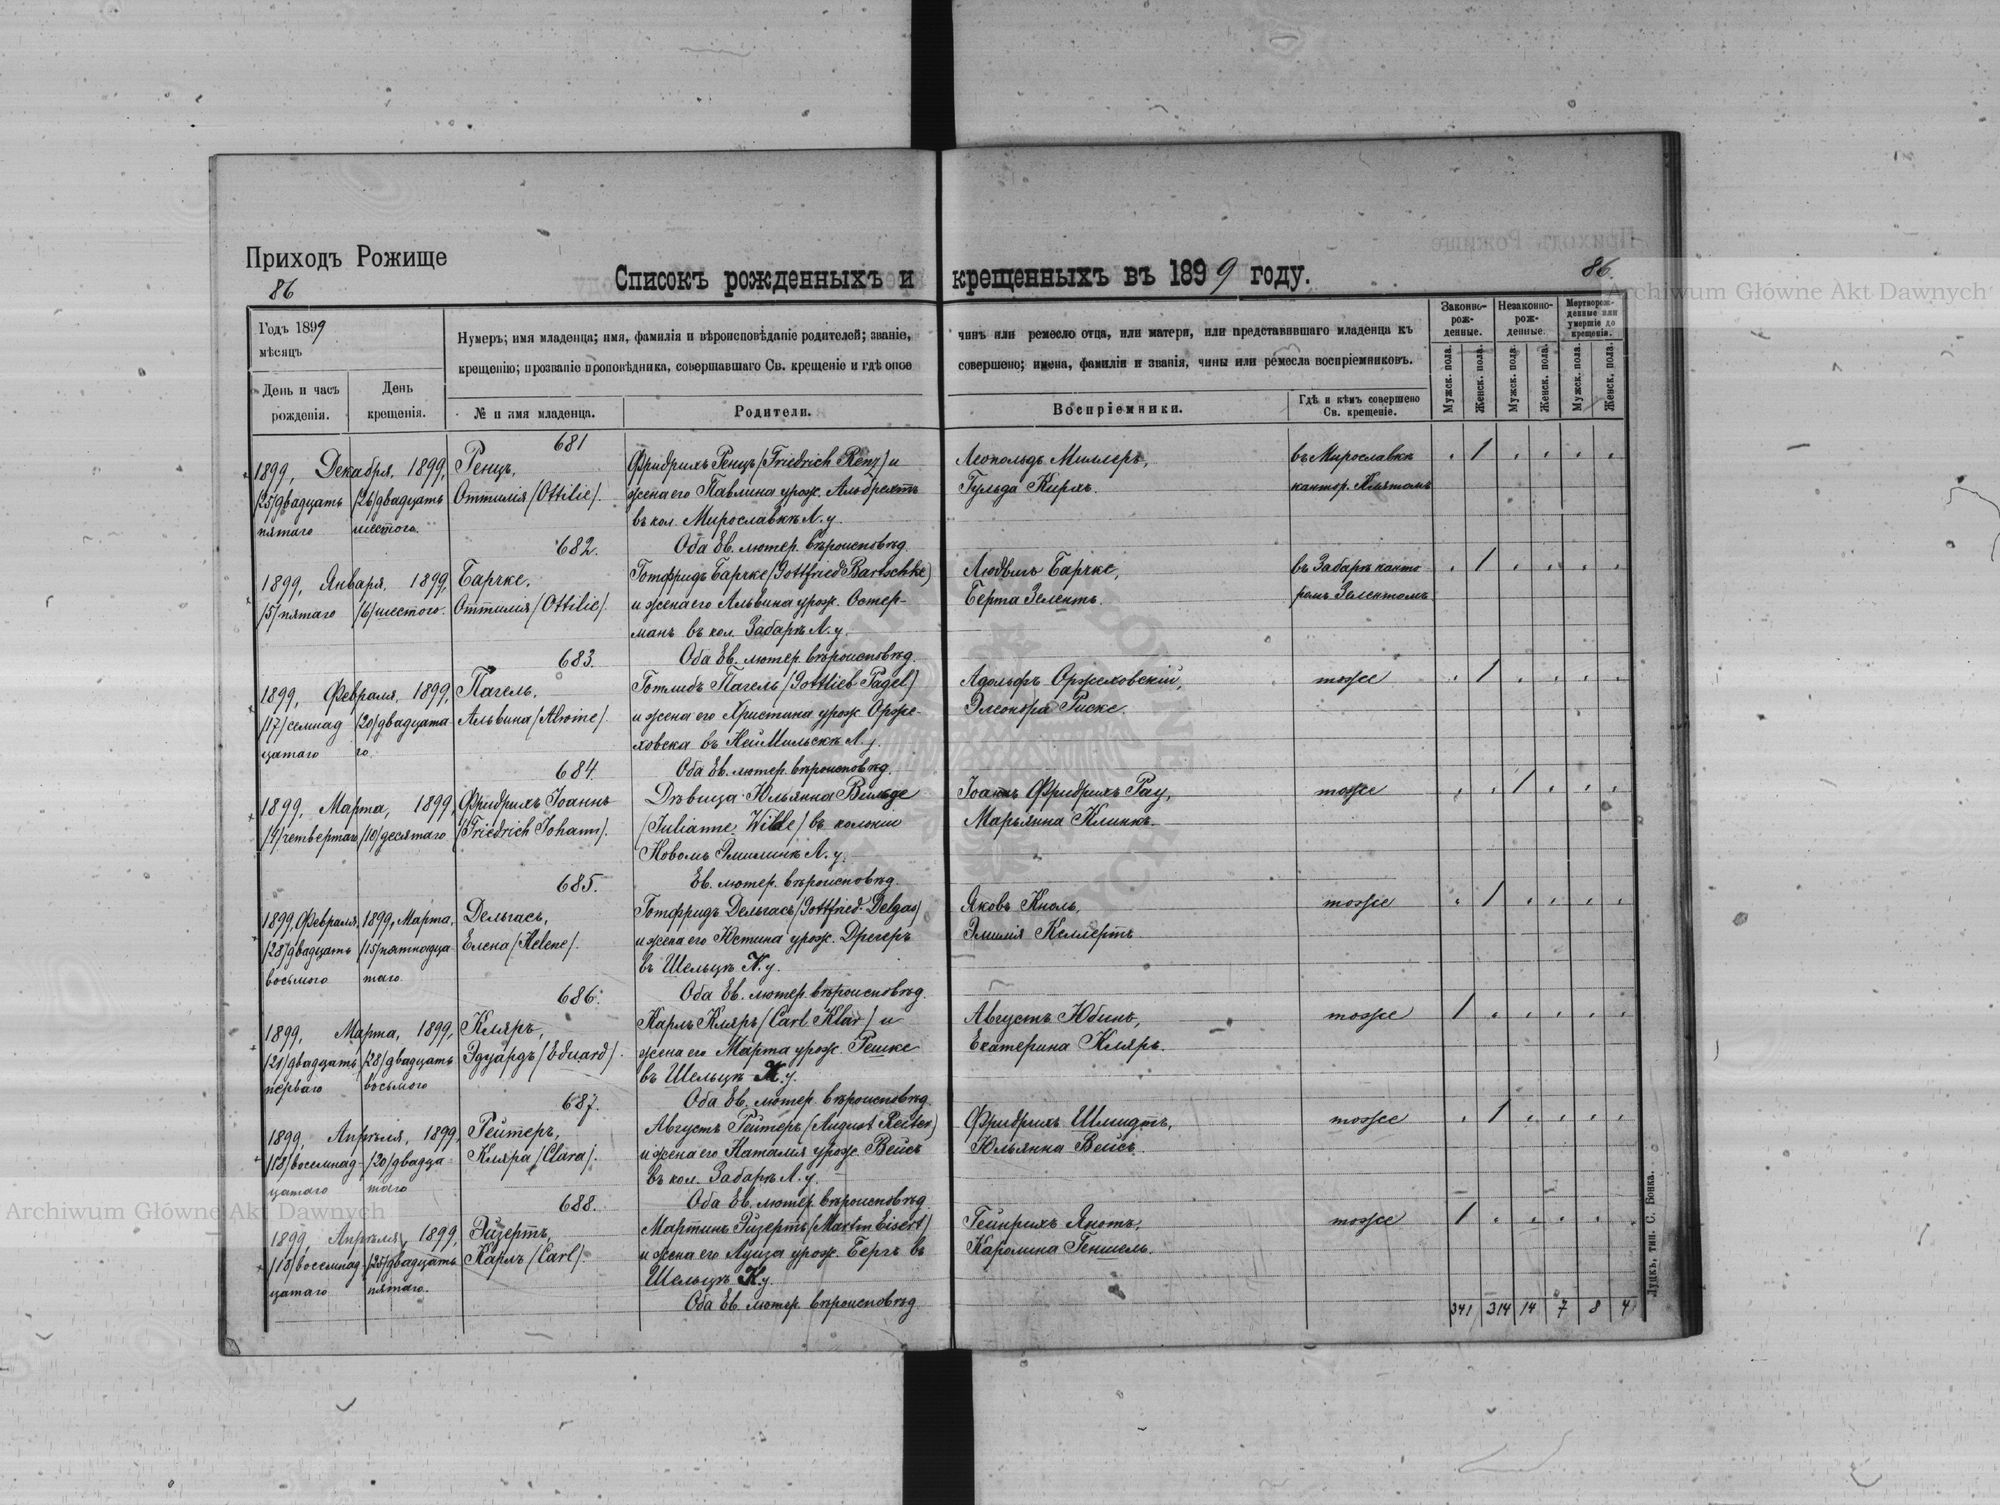 Приходъ Рожище
86
Списокъ рожденныхъ и крещенныхъ въ 1899 году.
86.
Archiwum Główne Akt Dawnych
Годъ 1899
мѣсяцъ
День и часъ рожденія.
День крещенія.
Нумеръ; имя младенца; имя, фамилія и вѣроисповѣданіе родителей; званіе, чинъ или ремесло отца, или матери, или представившаго младенца къ
крещенію; прозваніе проповѣдника, совершавшаго Св. крещеніе и гдѣ оное совершено; имена, фамиліи и званія, чины или ремесла воспріемниковъ.
№ и имя младенца.
Родители.
Воспріемники.
Гдѣ и кѣмъ совершено Св. крещеніе.
Законно-рож-денные.
Незаконно-рож-денные.
Мертворож-денные или умершіе до крещенія.
Мужск. пола.
Женск. пола.
Мужск. пола.
Женск. пола.
Мужск. пола.
Женск. пола.
681
1899, Декабря, 1899, Ренцъ, Фридрихъ Ренцъ (Friedrich Renz) и Леопольдъ Миллеръ, въ Мирославкѣ . 1 . . . .
/25/двадцать /26/двадцать Оттилія /Ottilie/. жена его Павлина урож. Альбрехтъ Гульда Кирхъ. кантор. Клятомъ
пятаго шестого. въ кол. Мирославкѣ Л. у.
682. Оба Ев. лютер. вѣроисповѣд.
1899, Января, 1899, Барчке, Готфридъ Барчке /Gottfried Bartschke/ Людвигъ Барчке, въ Забарѣ канто . 1 . . . .
/5/пятаго /6/шестого. Оттилія /Ottilie/. и жена его Альвина урож. Остер- Берта Зелентъ. ромъ Зелентомъ
манъ въ кол. Забарѣ Л. у.
683. Оба Ев. лютер. вѣроисповѣд.
1899, Февраля, 1899, Пагель, Готлибъ Пагель /Gottlieb Pagel/ Адольфъ Оржеховскій, тоже . 1 . . . .
/17/семнад /20/двадцата Альвина /Alwine/. и жена его Христина урож. Орже- Элеонора Риске.
цатаго го. ховска въ НейМильскѣ Л. у.
684. Оба Ев. лютер. вѣроисповѣд.
1899, Марта, 1899, Фридрихъ Іоаннъ Дѣвица Юльянна Вильде Іоаннъ Фридрихъ Рау, тоже . . 1 . . .
/4/четвертаго /10/десятаго /Friedrich Johann/. /Julianne Wilde/ въ колоніи Марьянна Клинкъ.
Новомъ Эмилинѣ Л. у.
685. Ев. лютер. вѣроисповѣд.
1899, Февраля, 1899, Марта, Дельгасъ, Готфридъ Дельгасъ /Gottfried Delgas/ Яковъ Кноль, тоже . 1 . . . .
/28/двадцать /15/пятнадца Елена /Helene/. и жена его Юстина урож. Дрегеръ Эмилія Келлертъ.
восьмого таго. въ Шельцѣ К. у.
686. Оба Ев. лютер. вѣроисповѣд.
1899, Марта, 1899, Кляръ, Карлъ Кляръ /Carl Klar/ и Августъ Юдинъ, тоже 1 . . . . .
/21/двадцать /28/двадцать Эдуардъ /Eduard/. жена его Марта урож. Решке Екатерина Кляръ.
перваго восьмого въ Шельцѣ К. у.
687. Оба Ев. лютер. вѣроисповѣд.
1899, Апрѣля, 1899, Рейтеръ, Августъ Рейтеръ /August Reiter/ Фридрихъ Шмидтъ, тоже . 1 . . . .
/18/восемнад /20/двадца Кляра /Clara/. и жена его Наталія урож. Вейсъ Юльянна Вейсъ.
цатаго таго въ кол. Забарѣ Л. у.
688. Оба Ев. лютер. вѣроисповѣд.
Archiwum Główne Akt Dawnych
1899, Апрѣля, 1899, Эйзертъ, Мартинъ Эйзертъ /Martin Eisert/ Гейнрихъ Янотъ, тоже 1 . . . . .
/18/восемнад /25/двадцать Карлъ /Carl/. и жена его Луиза урож. Бергъ въ Каролина Геншель.
цатаго пятаго. Шельцѣ К. у.
Оба Ев. лютер. вѣроисповѣд.
341 314 14 7 8 4
Луцкъ, тип. С. Бонка.